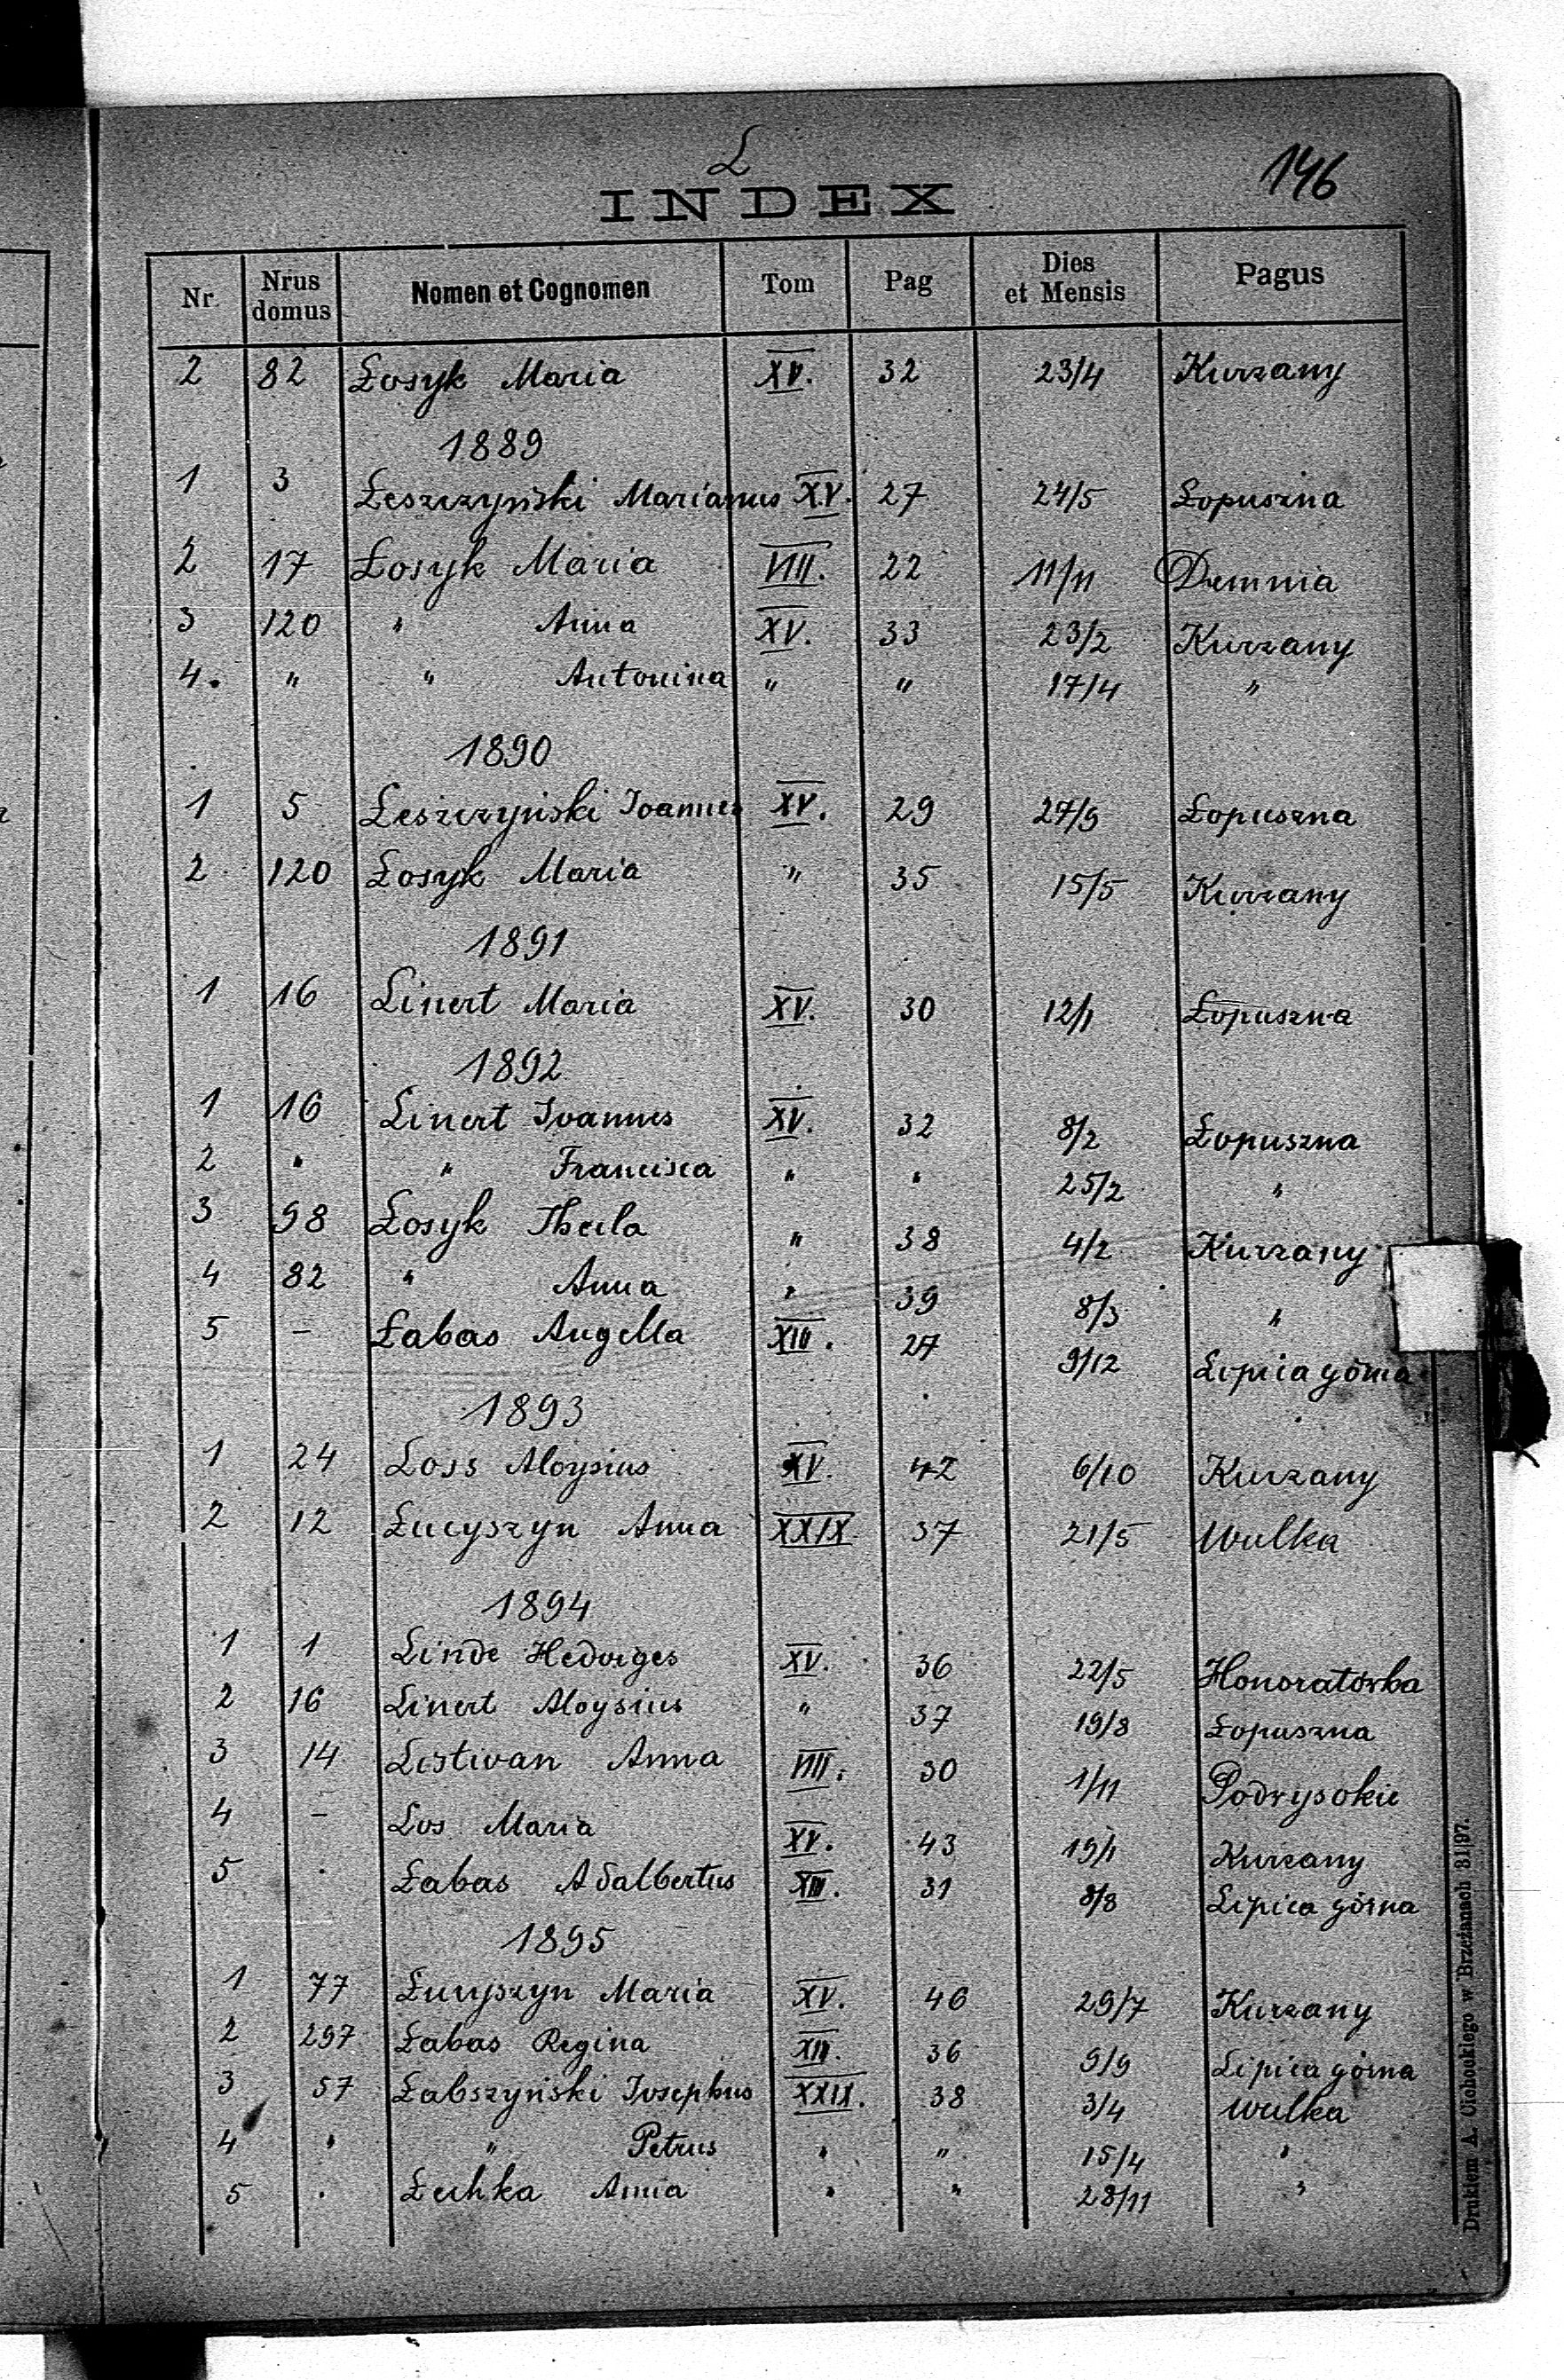 L
146
INDEX
Nr. Nrus domus Nomen et Cognomen Tom Pag Dies et Mensis Pagus
2 82 Łosyk Maria XV. 32 23/4 Kurzany
1889
1 3 Leszczyński Marianus XV. 27 24/5 Łopuszna
2 17 Łosyk Maria VIII. 22 11/11 Demnia
3 120 " Anna XV. 33 23/2 Kurzany
4. " " Antonina " " 17/4 "
1890
1 5 Leszczyński Joannes XV. 29 27/9 Łopuszna
2 120 Łosyk Maria " 35 15/5 Kurzany
1891
1 16 Linert Maria XV. 30 12/1 Łopuszna
1892
1 16 Linert Joannes XV. 32 8/2 Łopuszna
2 " " Francisca " " 25/2 "
3 98 Łosyk Thecla " 38 4/2 Kurzany
4 82 " Anna " 39 8/3 "
5 – Łabas Angella 27 9/12 Lipica górna
1893
1 24 Loss Aloysius XV. 42 6/10 Kurzany
2 12 Łucyszyn Anna XXIX 37 21/5 Wulka
1894
1 1 Linde Hedviges XV. 36 22/5 Honoratówka
2 16 Linert Aloysius " 37 19/8 Łopuszna
3 14 Listivan Anna VIII. 30 1/11 Podvysokie
4 – Los Maria XV. 43 19/1 Kurzany
5 . Łabas Adalbertus 31 8/8 Lipica górna
1895
1 77 Łucyszyn Maria XV. 46 29/7 Kurzany
2 297 Łabas Regina 36 9/9 Lipica górna
3 57 Łabszyński Josephus XXIX. 38 3/4 Wulka
4 " " Petrus " " 15/4 "
5 . Anna " " 28/11 "
Drukiem A. Cichockiego w Brzeżanach 31|97.